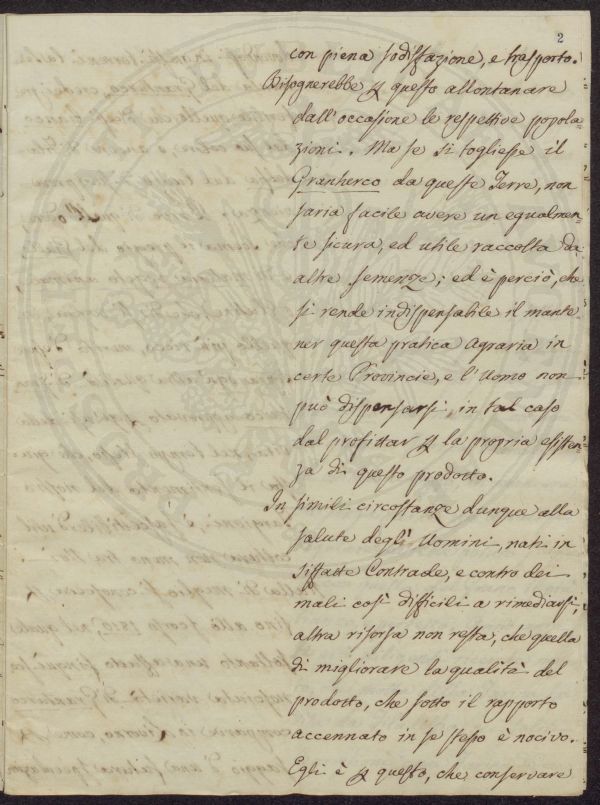 2
con piena sodisfazione, e trasporto.
Bisognerebbe p questo allontanare
dall'occasione le respettive popola=
zioni. Ma se si togliesse il
Granturco da queste Terre, non
saria facile avere un egualmen=
te sicura, ed utile raccolta da
altre semenze; ed è perciò, che
si rende indispensabile il mante
ner questa pratica Agraria in
certe Provincie, e l'Uomo non
può dispensarsi in tal caso
dal profittar p la propria esisten=
za di questo prodotto.
In simili circostanze dunque alla
salute degl'Uomini nati in
siffatte Contrade, e contro dei
mali così difficili a rimediarsi,
altra risorsa non resta, che quella
di migliorare la qualità del
prodotto, che sotto il rapporto
accennato in se stesso è nocivo.
Egli è p questo, che conservare